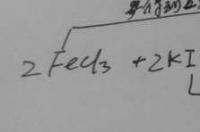 2FeCl₃ + 2KI